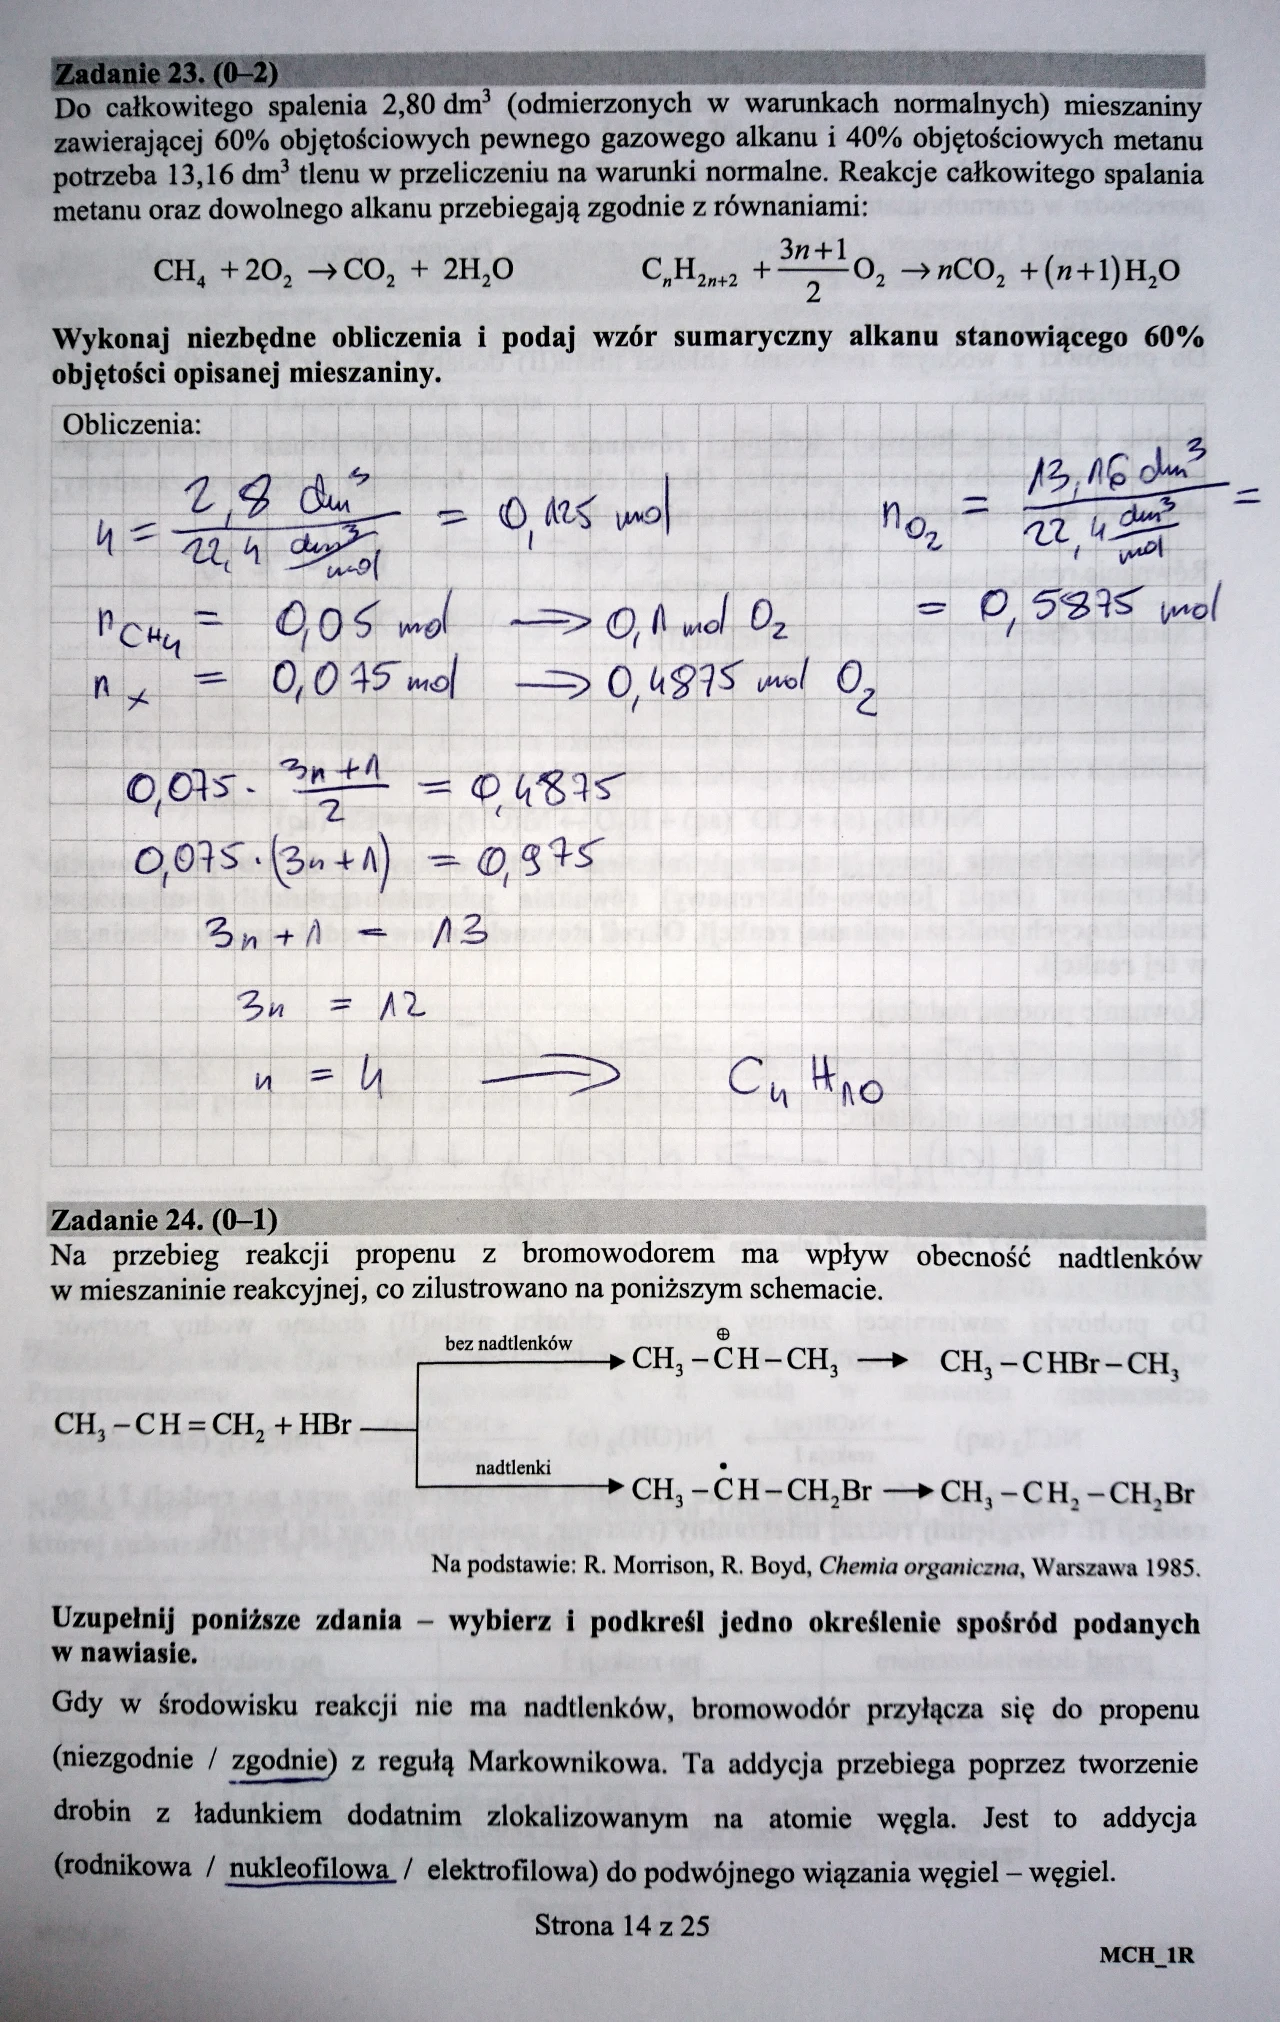 Zadanie 23. (0–2)
Do całkowitego spalenia 2,80 dm³ (odmierzonych w warunkach normalnych) mieszaniny
zawierającej 60% objętościowych pewnego gazowego alkanu i 40% objętościowych metanu
potrzeba 13,16 dm³ tlenu w przeliczeniu na warunki normalne. Reakcje całkowitego spalania
metanu oraz dowolnego alkanu przebiegają zgodnie z równaniami:
CH₄ + 2O₂ → CO₂ + 2H₂O CₙH₂ₙ₊₂ + (3n+1)/2 O₂ → nCO₂ + (n+1)H₂O
Wykonaj niezbędne obliczenia i podaj wzór sumaryczny alkanu stanowiącego 60%
objętości opisanej mieszaniny.
Obliczenia:
n = 2,8 dm³ / 22,4 dm³/mol = 0,125 mol n O₂ = 13,16 dm³ / 22,4 dm³/mol =
n CH₄ = 0,05 mol ⟹ 0,1 mol O₂ = 0,5875 mol
n x = 0,075 mol ⟹ 0,4875 mol O₂
0,075 · (3n+1)/2 = 0,4875
0,075 · (3n+1) = 0,975
3n + 1 = 13
3n = 12
n = 4 ⟹ C₄H₁₀
Zadanie 24. (0–1)
Na przebieg reakcji propenu z bromowodorem ma wpływ obecność nadtlenków
w mieszaninie reakcyjnej, co zilustrowano na poniższym schemacie.
bez nadtlenków
⊕
CH₃ – CH – CH₃ → CH₃ – CHBr – CH₃
CH₃ – CH = CH₂ + HBr
nadtlenki
•
CH₃ – CH – CH₂Br → CH₃ – CH₂ – CH₂Br
Na podstawie: R. Morrison, R. Boyd, Chemia organiczna, Warszawa 1985.
Uzupełnij poniższe zdania – wybierz i podkreśl jedno określenie spośród podanych
w nawiasie.
Gdy w środowisku reakcji nie ma nadtlenków, bromowodór przyłącza się do propenu
(niezgodnie / zgodnie) z regułą Markownikowa. Ta addycja przebiega poprzez tworzenie
drobin z ładunkiem dodatnim zlokalizowanym na atomie węgla. Jest to addycja
(rodnikowa / nukleofilowa / elektrofilowa) do podwójnego wiązania węgiel – węgiel.
Strona 14 z 25
MCH_1R